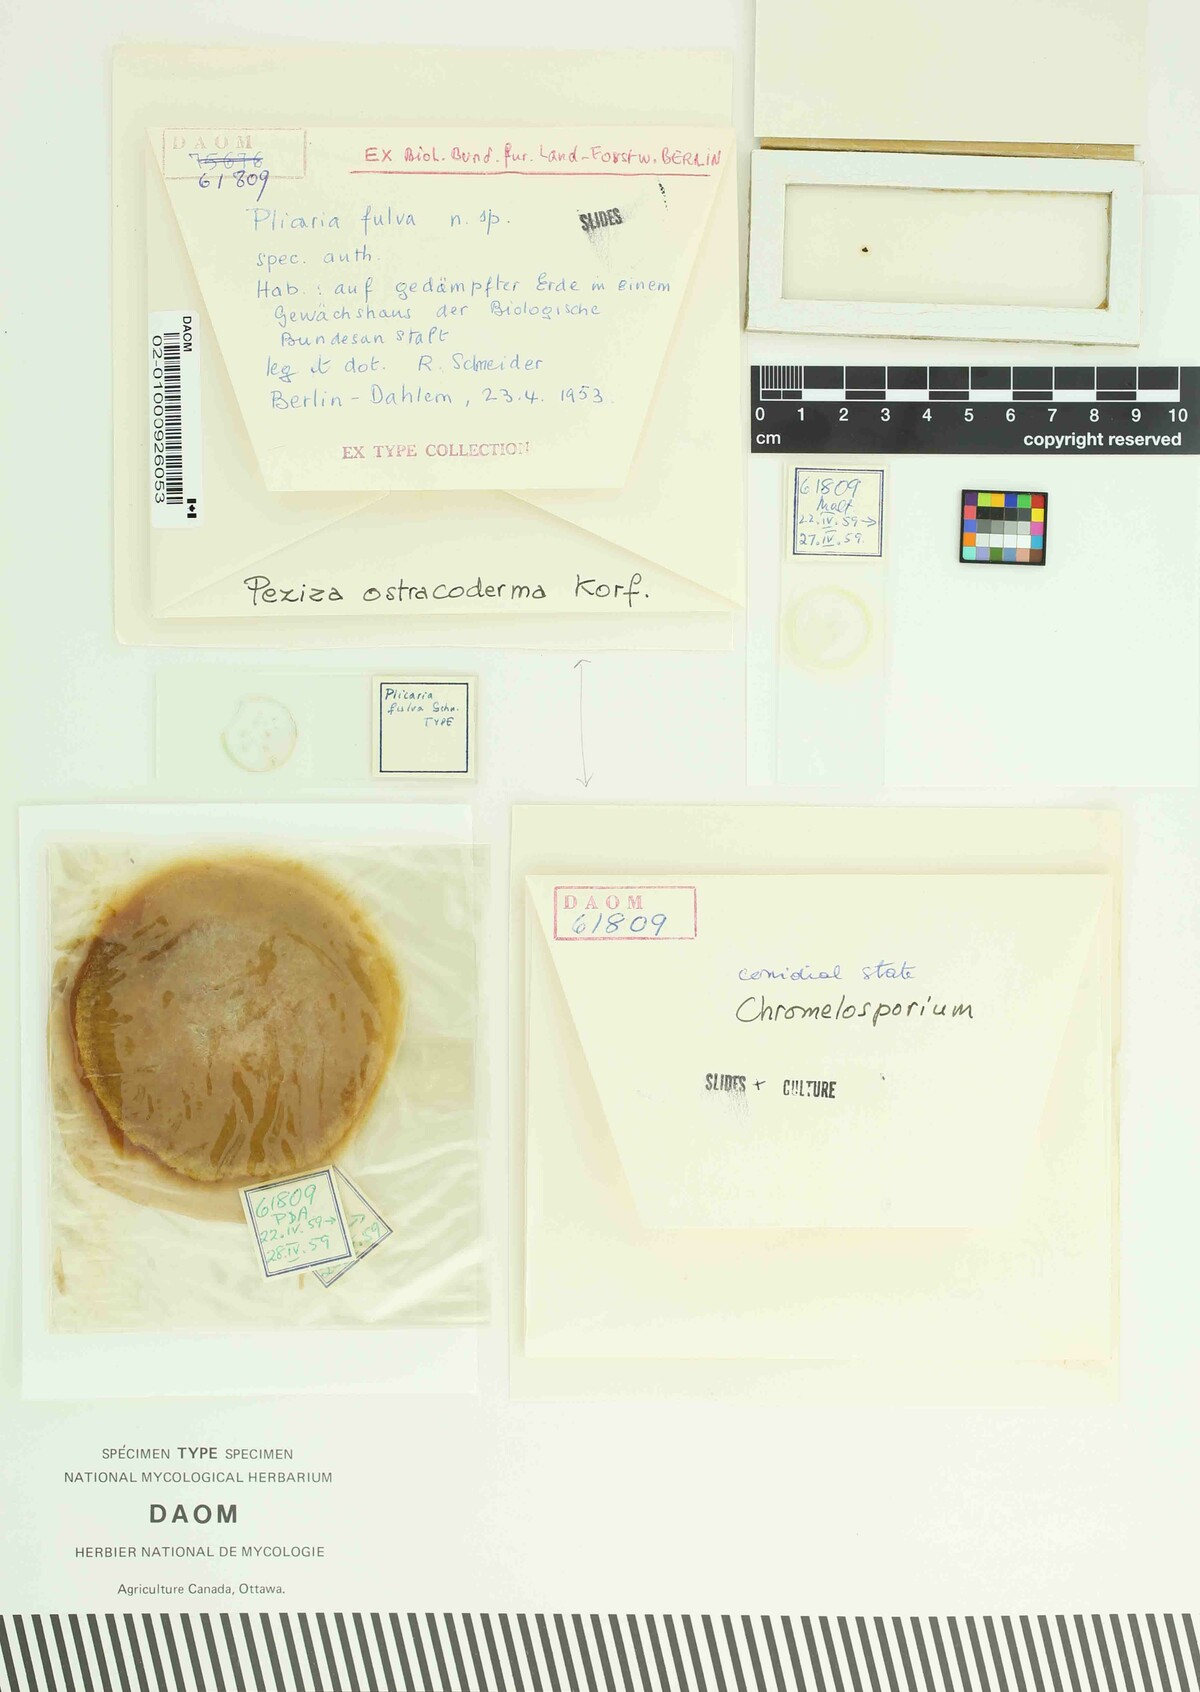 DAOM
75676
61809
Ex Biol. Bund. fur. Land-Forstw. BERLIN
Plicaria fulva n. sp.
SLIDES
spec. auth.
Hab.: auf gedämpfter Erde in einem
Gewächshaus der Biologische
Bundesanstalt
leg et dot. R. Schneider
Berlin-Dahlem, 23.4. 1953.
EX TYPE COLLECTION
DAOM
02-01000926053
Peziza ostracoderma Korf.
0 1 2 3 4 5 6 7 8 9 10
cm copyright reserved
61809
Malt
22.IV.59→
27.IV.59.
Plicaria
fulva Schn.
TYPE
DAOM
61809
conidial state
Chromelosporium
SLIDES + CULTURE
61809
PDA
22.IV.59→
28.IV.59
.59
SPÉCIMEN TYPE SPECIMEN
NATIONAL MYCOLOGICAL HERBARIUM
DAOM
HERBIER NATIONAL DE MYCOLOGIE
Agriculture Canada, Ottawa.